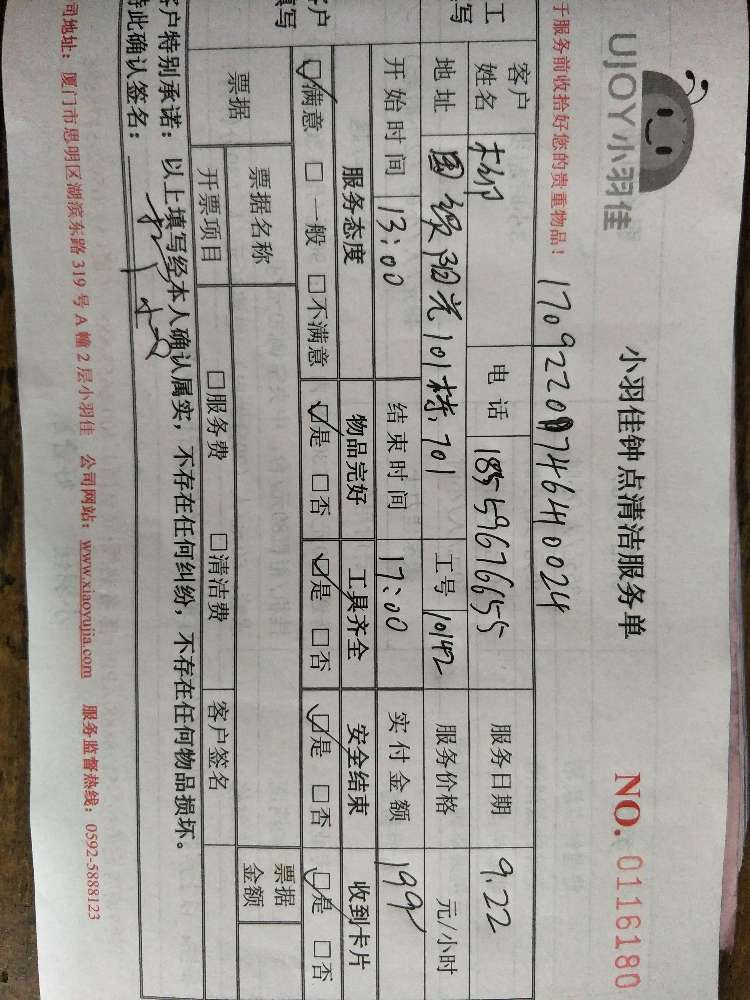 UJOY小羽佳
小羽佳钟点清洁服务单
NO. 0116180
于服务前收拾好您的贵重物品！
客户姓名 电话 18559676655 服务日期 9.22
地址 国贸阳光101栋701 工号 10142 服务价格 元/小时
开始时间 13:00 结束时间 17:00 实付金额 199
服务态度 物品完好 工具齐全 安全结束 收到卡片
☑满意 □一般 □不满意 ☑是 □否 ☑是 □否 ☑是 □否 ☑是 □否
票据 票据名称 票据金额
开票项目 □服务费 □清洁费 客户签名
客户特别承诺：以上填写经本人确认属实，不存在任何纠纷，不存在任何物品损坏。
特此确认签名：
司地址：厦门市思明区湖滨东路319号A幢2层小羽佳 公司网站：www.xiaoyujia.com 服务监督热线：0592-5888123